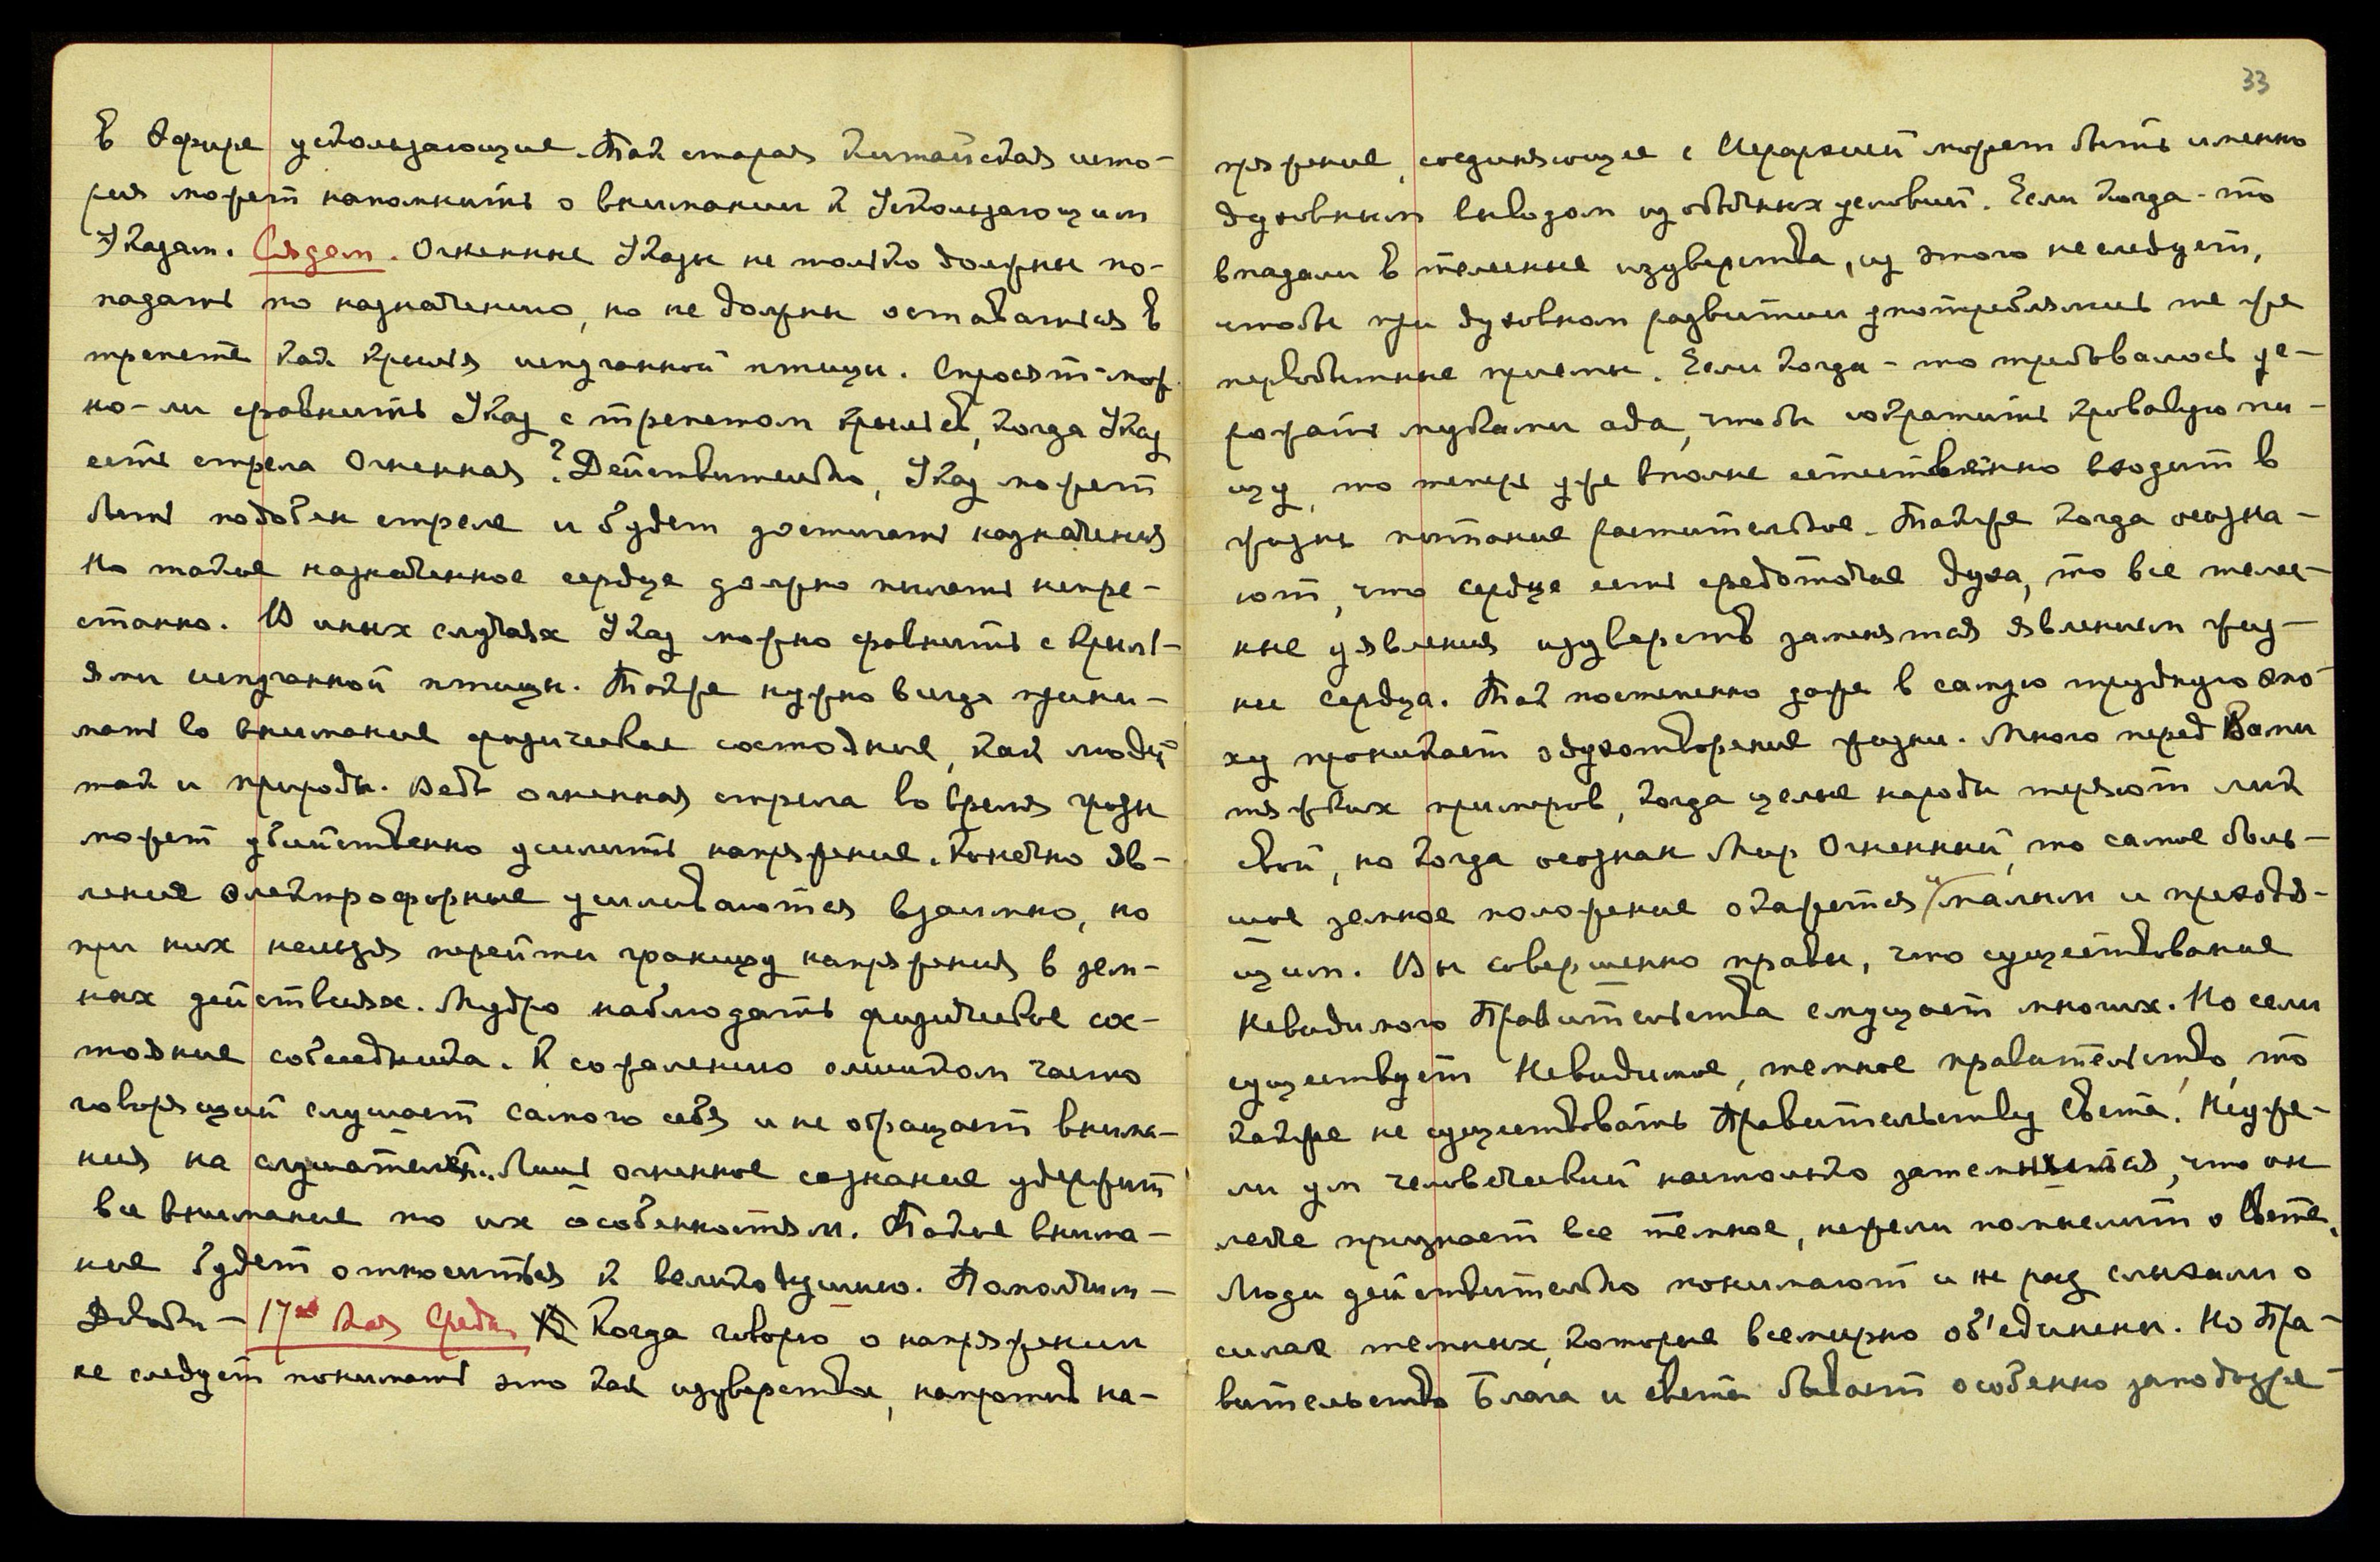 в эфире ускользающие. Так старая китайская исто-
рия может напомнить о внимании к Ускользающим
Указам. Сядем. Огненные Указы не только должны по-
падать по назначению, но не должны оставаться в
трепете как крылья испуганной птицы. Спросят-мож
но-ли сравнить Указ с трепетом крыльев, когда Указ
есть стрела Огненная? Действительно, Указ может
быть подобен стреле и будет достигать назначения
Но такое назначенное сердце должно пылать непре-
станно. В иных случаях Указ можно сравнить с крыль-
ями испуганной птицы. Также нужно всегда прини-
мать во внимание физическое состояние, как людей
так и природы. Ведь огненная стрела во время грозы
может убийственно усилить напряжение. Конечно яв-
ление электрофорные усиливаются взаимно, но
при них нельзя перейти границу напряжения в зем-
ных действиях. Мудро наблюдать физическое сос-
тояние собеседника. К сожалению слишком часто
говорящий слушает самого себя и не обращает внима-
ния на слушателей. Лишь огненное сознание удержит
все внимание по их особенностям. Такое внима-
ние будет относиться к великодушию. Помолчим-
Довольно - 17ое Мая Среда Когда говорю о напряжении
не следует понимать это как изуверство, напротив на-
33
пряжение, соединяющее с Иерархией может быть именно
духовным выводом из обычных условий. Если когда-то
впадали в телесные изуверства, из этого не следует,
чтобы при духовном развитии употреблялись те же
первобытные приемы. Если когда-то требовалось уг-
рожать муками ада, чтобы сократить кровавую пи-
щу, то теперь уже вполне естественно входит в
жизнь питание растительное. Также когда осозна-
ют, что сердце есть средоточие духа, то все телес-
ные уявления изуверств заменятся явлением жиз-
ни сердца. Так постепенно даже в самую трудную эпо-
ху проникает одухотворение жизни. Много перед Вами
тяжких примеров, когда целые народы теряют лик
свой, но когда осознан Мир Огненный, то самое боль-
шое земное положение окажется и малым и преходя-
щим. Вы совершенно правы, что существование
Невидимого Правительства смущает многих. Но если
существует Невидимое, темное правительство, то
как же не существовать Правительству Света! Неуже-
ли ум человеческий настолько затемнился, что он
легче признает все темное, нежели помыслит о Свете.
Люди действительно понимают и не раз слыхали о
силах темных, которые всемирно об'единены. Но Пра-
вительство Блага и света бывает особенно заподозре-